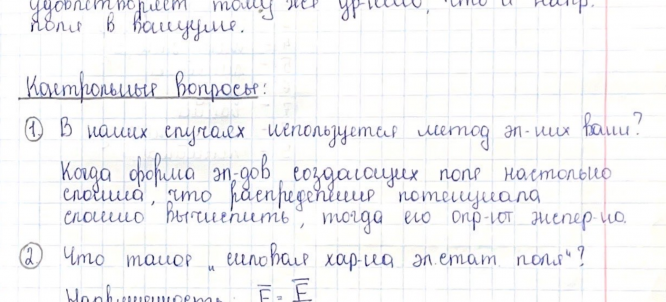 удовлетворяет тому же ур-нию, что и напр.
поля в вакууме.
Контрольные вопросы:
① В каких случаях используется метод эл-ких ванн?
Когда форма эл-дов создающих поле настолько
сложна, что распределение потенциала
сложно вычислить, тогда его опр-ют экспер-но.
② Что такое „силовая хар-ка эл.стат. поля"?
Напряженность E = E